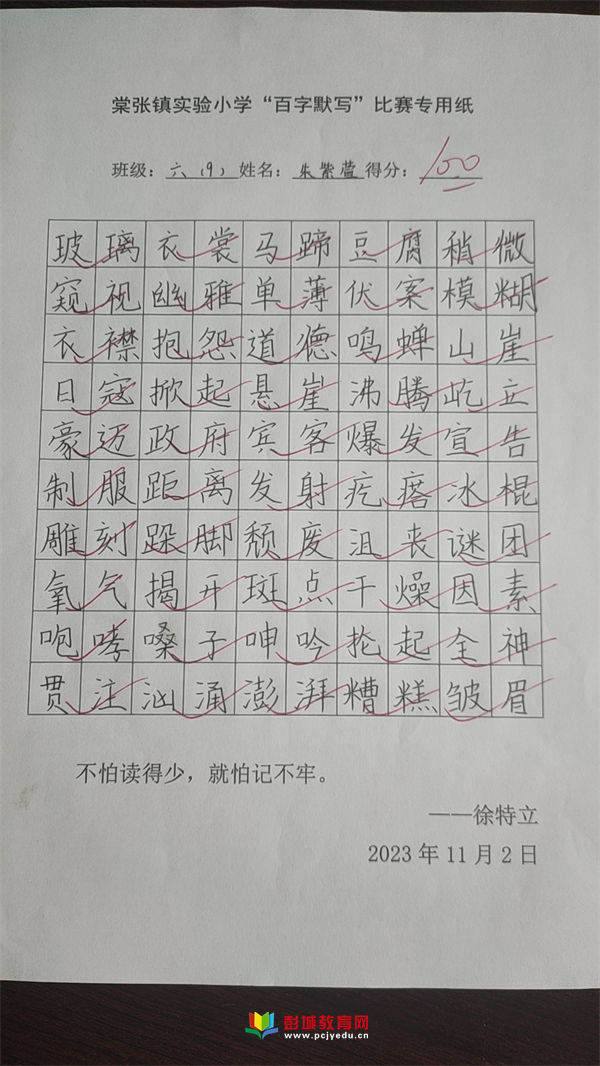 棠张镇实验小学“百字默写”比赛专用纸
班级：六（9）姓名：朱紫萱得分：100
玻璃衣裳马蹄豆腐稍微
窥视幽雅单薄伏案模糊
衣襟抱怨道德鸣蝉山崖
日寇掀起悬崖沸腾屹立
豪迈政府宾客爆发宣告
制服距离发射疙瘩冰棍
雕刻跺脚颓废沮丧谜团
氧气揭开斑点干燥因素
咆哮嗓子呻吟抡起全神
贯注汹涌澎湃糟糕皱眉
不怕读得少，就怕记不牢。
——徐特立
2023年11月2日
彭城教育网
www.pcjyedu.cn